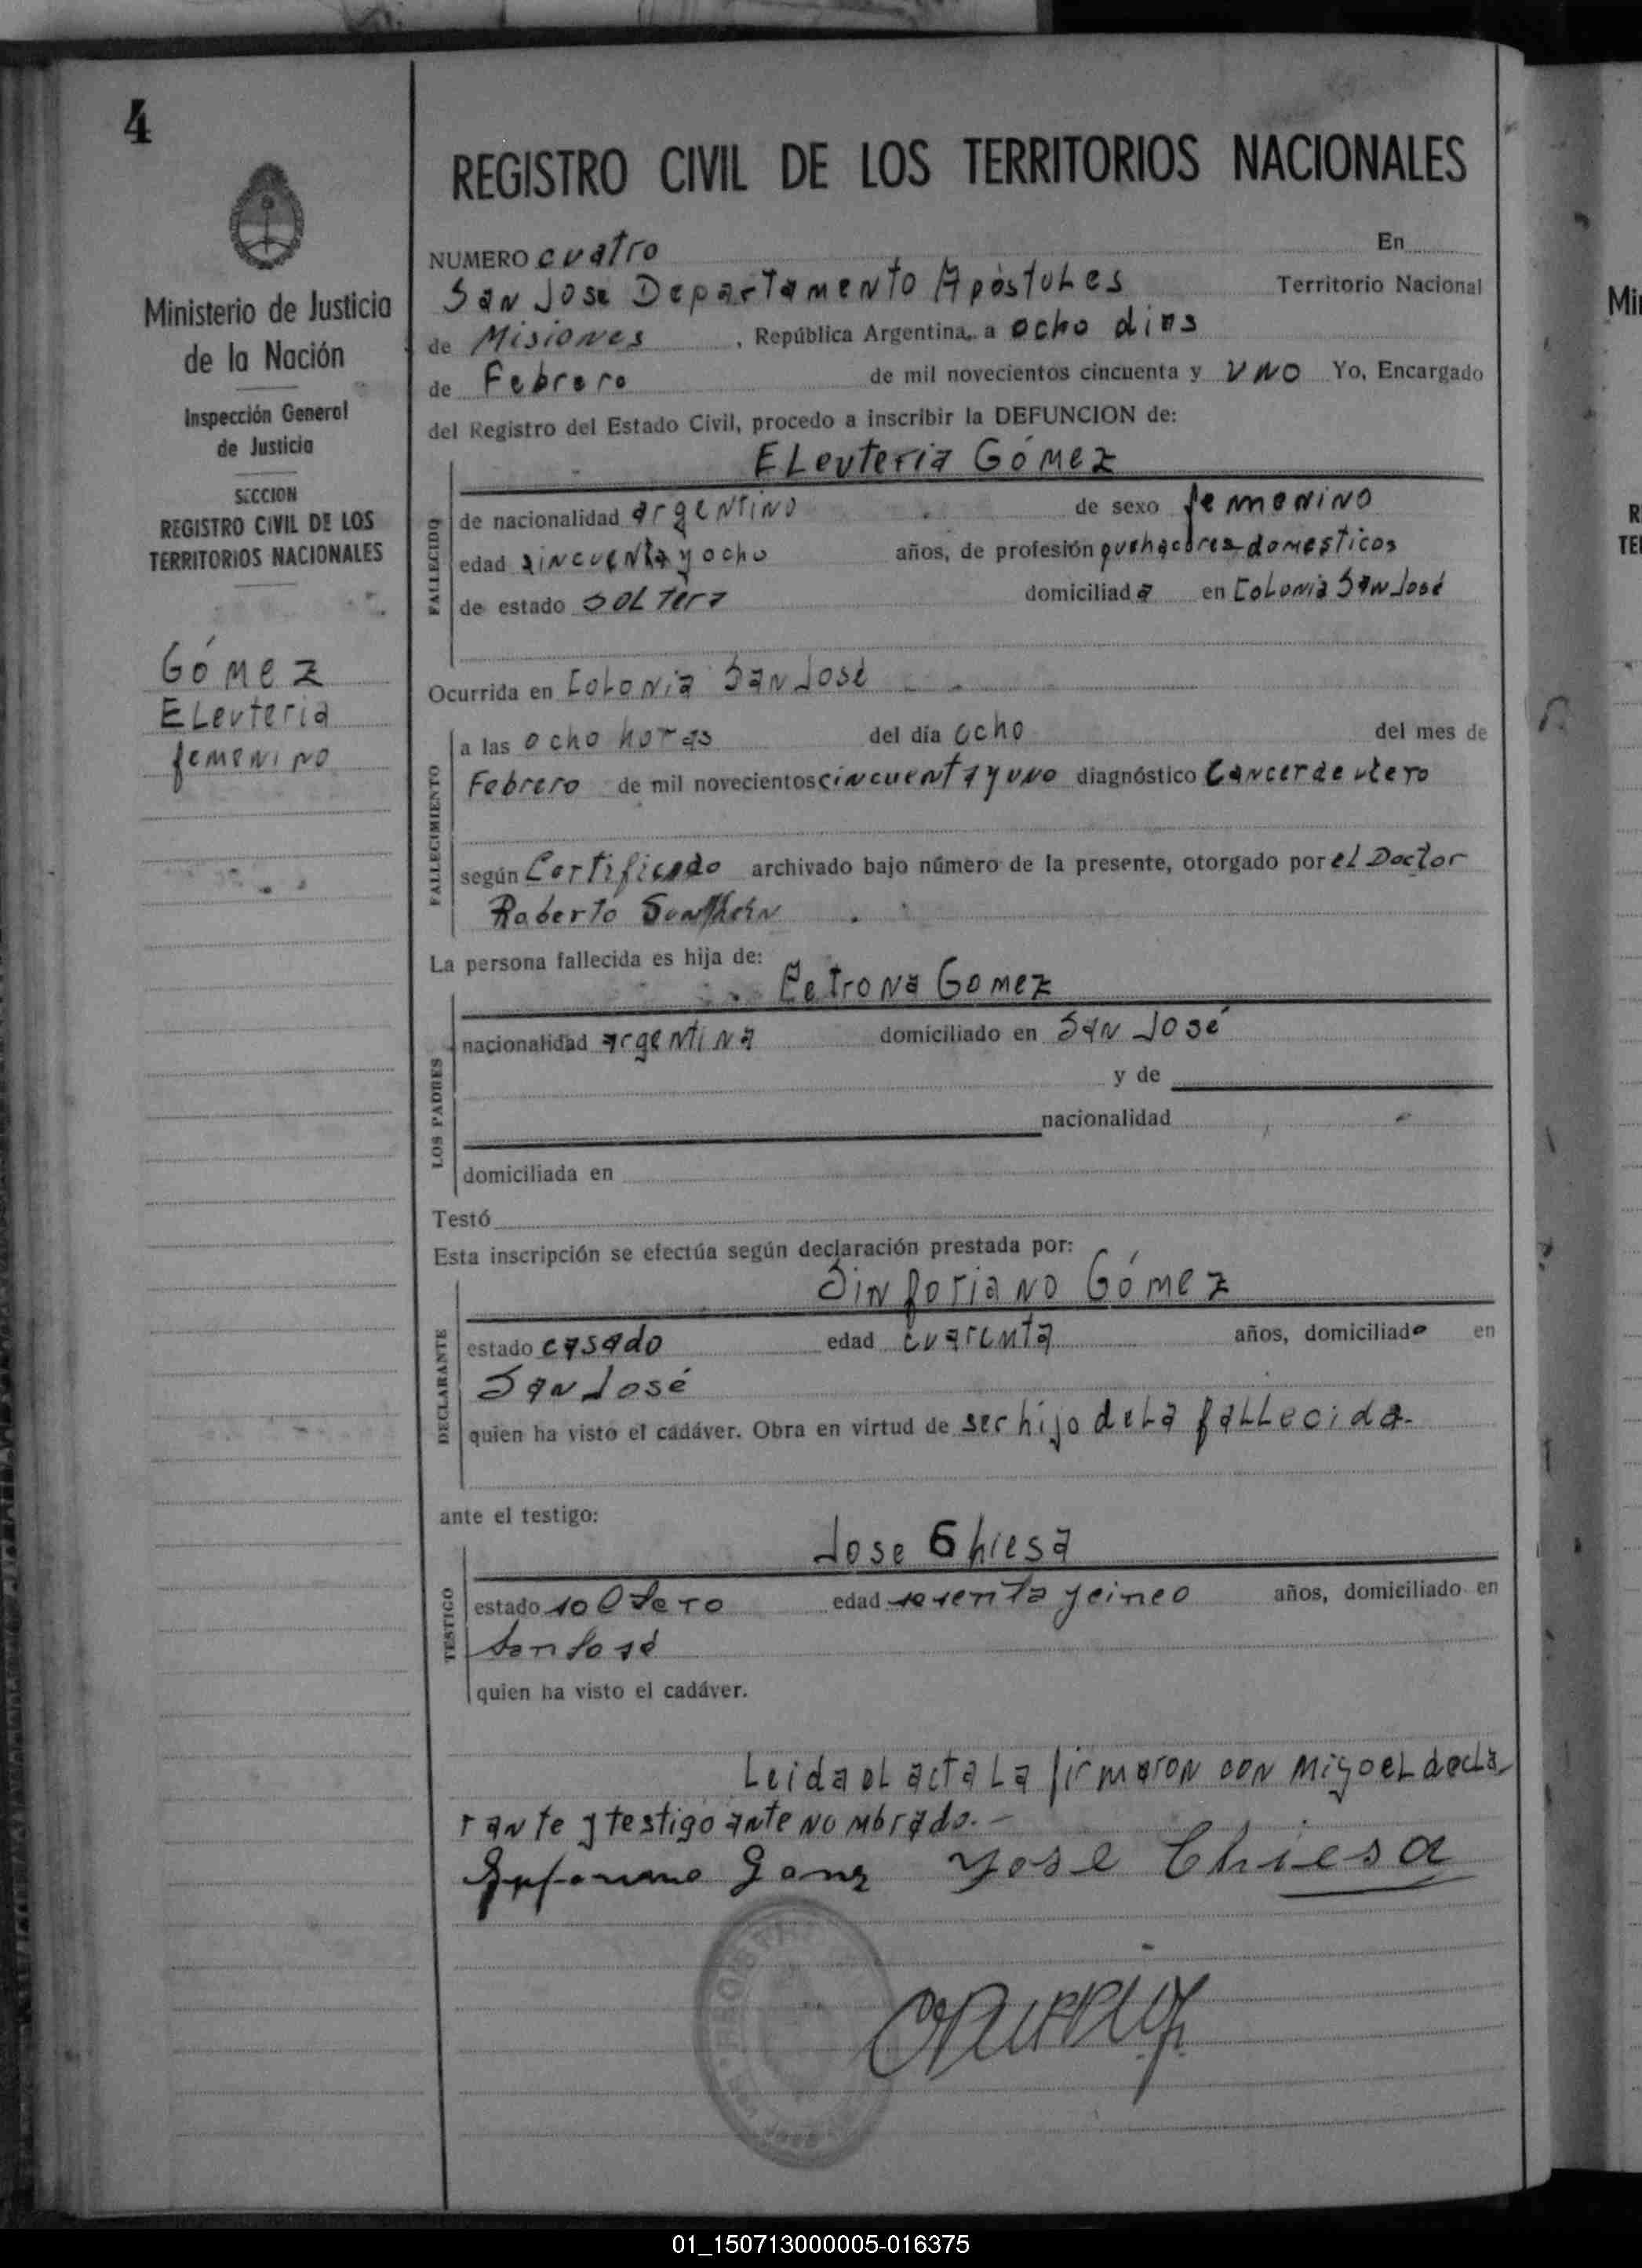 4
Ministerio de Justicia
de la Nación
Inspección General
de Justicia
SECCION
REGISTRO CIVIL DE LOS
TERRITORIOS NACIONALES
Gómez
Eleuteria
femenino
REGISTRO CIVIL DE LOS TERRITORIOS NACIONALES
NUMERO cuatro En
San Jose Departamento Apóstoles Territorio Nacional
de Misiones, República Argentina, a ocho dias
de Febrero de mil novecientos cincuenta y uno Yo, Encargado
del Registro del Estado Civil, procedo a inscribir la DEFUNCION de:
Eleuteria Gómez
FALLECIDO
de nacionalidad argentino de sexo femenino
edad sincuenta y ocho años, de profesión quehaceres domesticos
de estado soltera domiciliada en Colonia San José
Ocurrida en Colonia San José
FALLECIMIENTO
a las ocho horas del día ocho del mes de
Febrero de mil novecientos cincuenta y uno diagnóstico Cancer de utero
según Certificado archivado bajo número de la presente, otorgado por el Doctor
Roberto
La persona fallecida es hija de:
Petrona Gomez
LOS PADRES
nacionalidad argentina domiciliado en San José
y de
nacionalidad
domiciliada en
Testó
Esta inscripción se efectúa según declaración prestada por:
Sinforiano Gómez
DECLARANTE
estado casado edad cuarenta años, domiciliado en
San José
quien ha visto el cadáver. Obra en virtud de ser hijo de la fallecida.
ante el testigo:
Jose Chiesa
TESTIGO
estado soltero edad sesenta y cinco años, domiciliado en
San José
quien ha visto el cadáver.
Leida el acta la firmaron con migo el decla
rante y testigo ante nombrado.-
Sinforiano Gomez Jose Chiesa
01_150713000005-016375